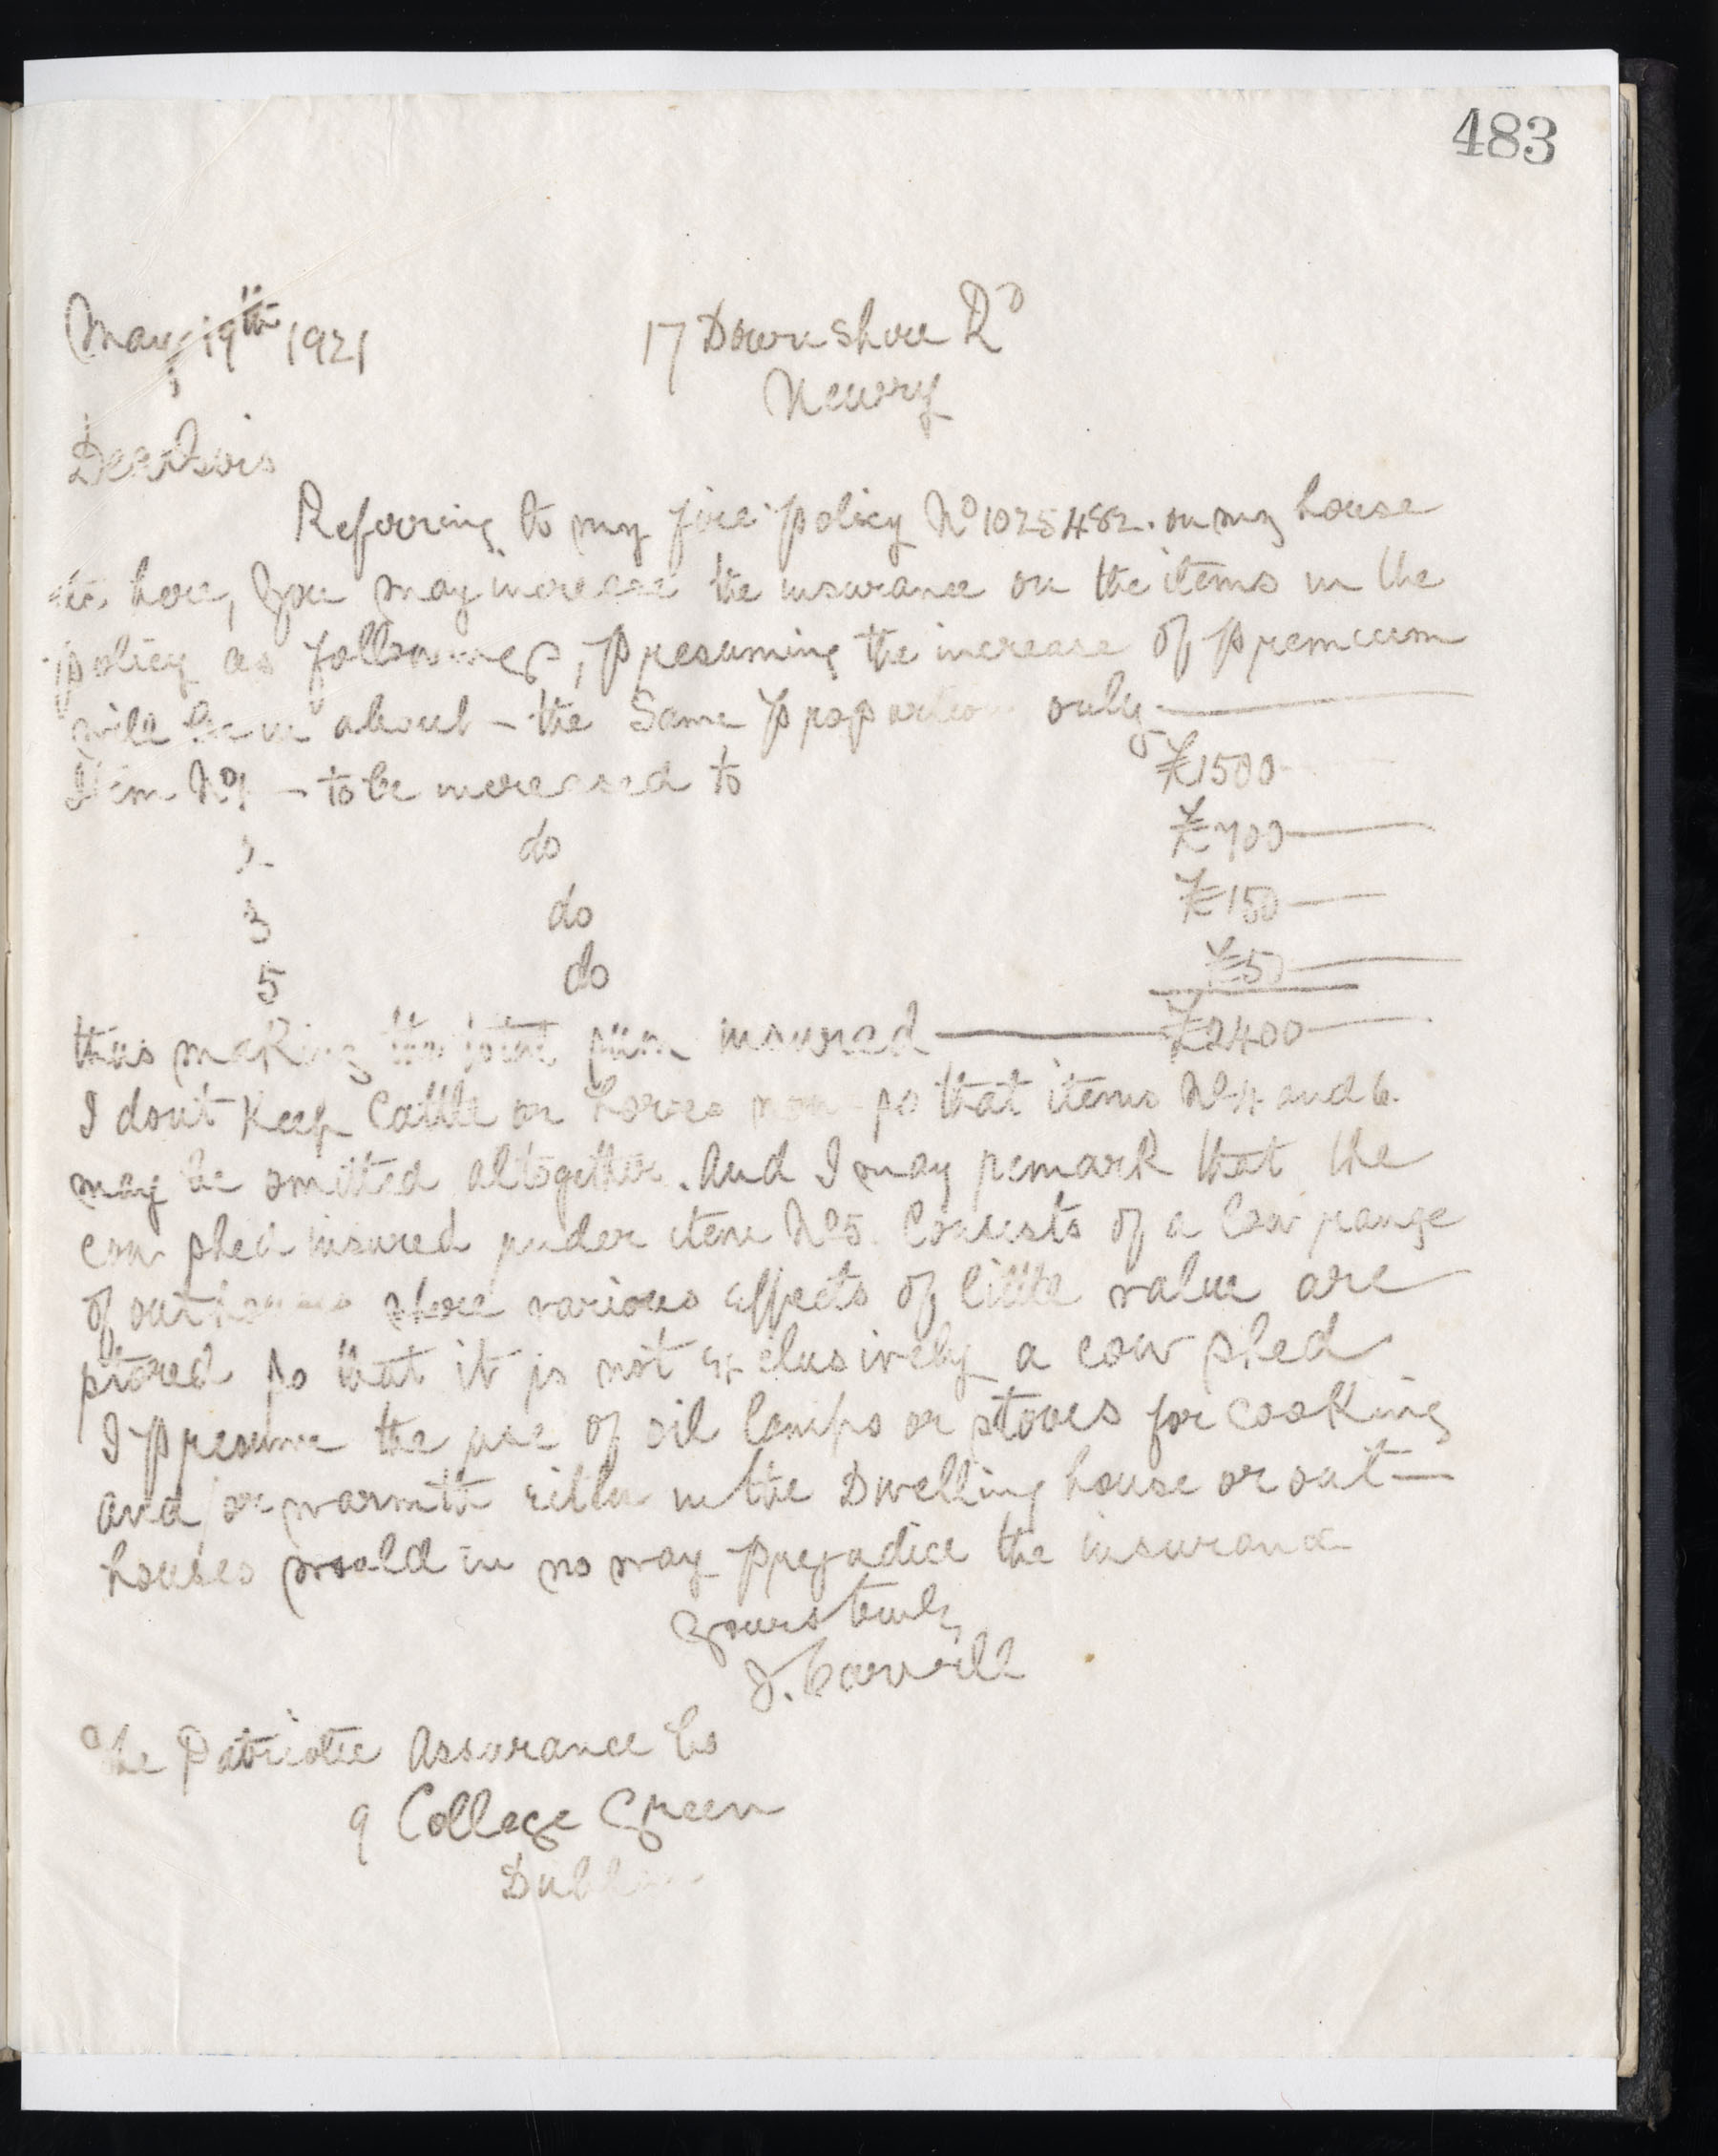 483
May 19th 1921 17 Downshire Rd
Newry
Dear Sirs
Referring to my fire policy No 1025482. on my house
here, you may increase the insurance on the items in the
policy as follows, presuming the increase of premium
will be in about - the Same proportion only
Item No 1 - to be increased to £1500
2 do £700
3 do £150
5 do £50
thus making the total sum insured £2400
I dont Keep Cattle or horses now so that items No 4 and 6.
may be omitted altogether. And I may remark that the
cow shed insured under item No 5. Consists of a low range
of outhouses where various effects of little value are
stored so that it is not exclusively a cow shed
I presume the use of oil lamps or stoves for cooking
and/or warmth either in the Dwelling house or out-
houses would in no way prejudice the insurance
Yours truly
J. Carvill
The Patriotic Assurance Co
9 College Green
Dublin